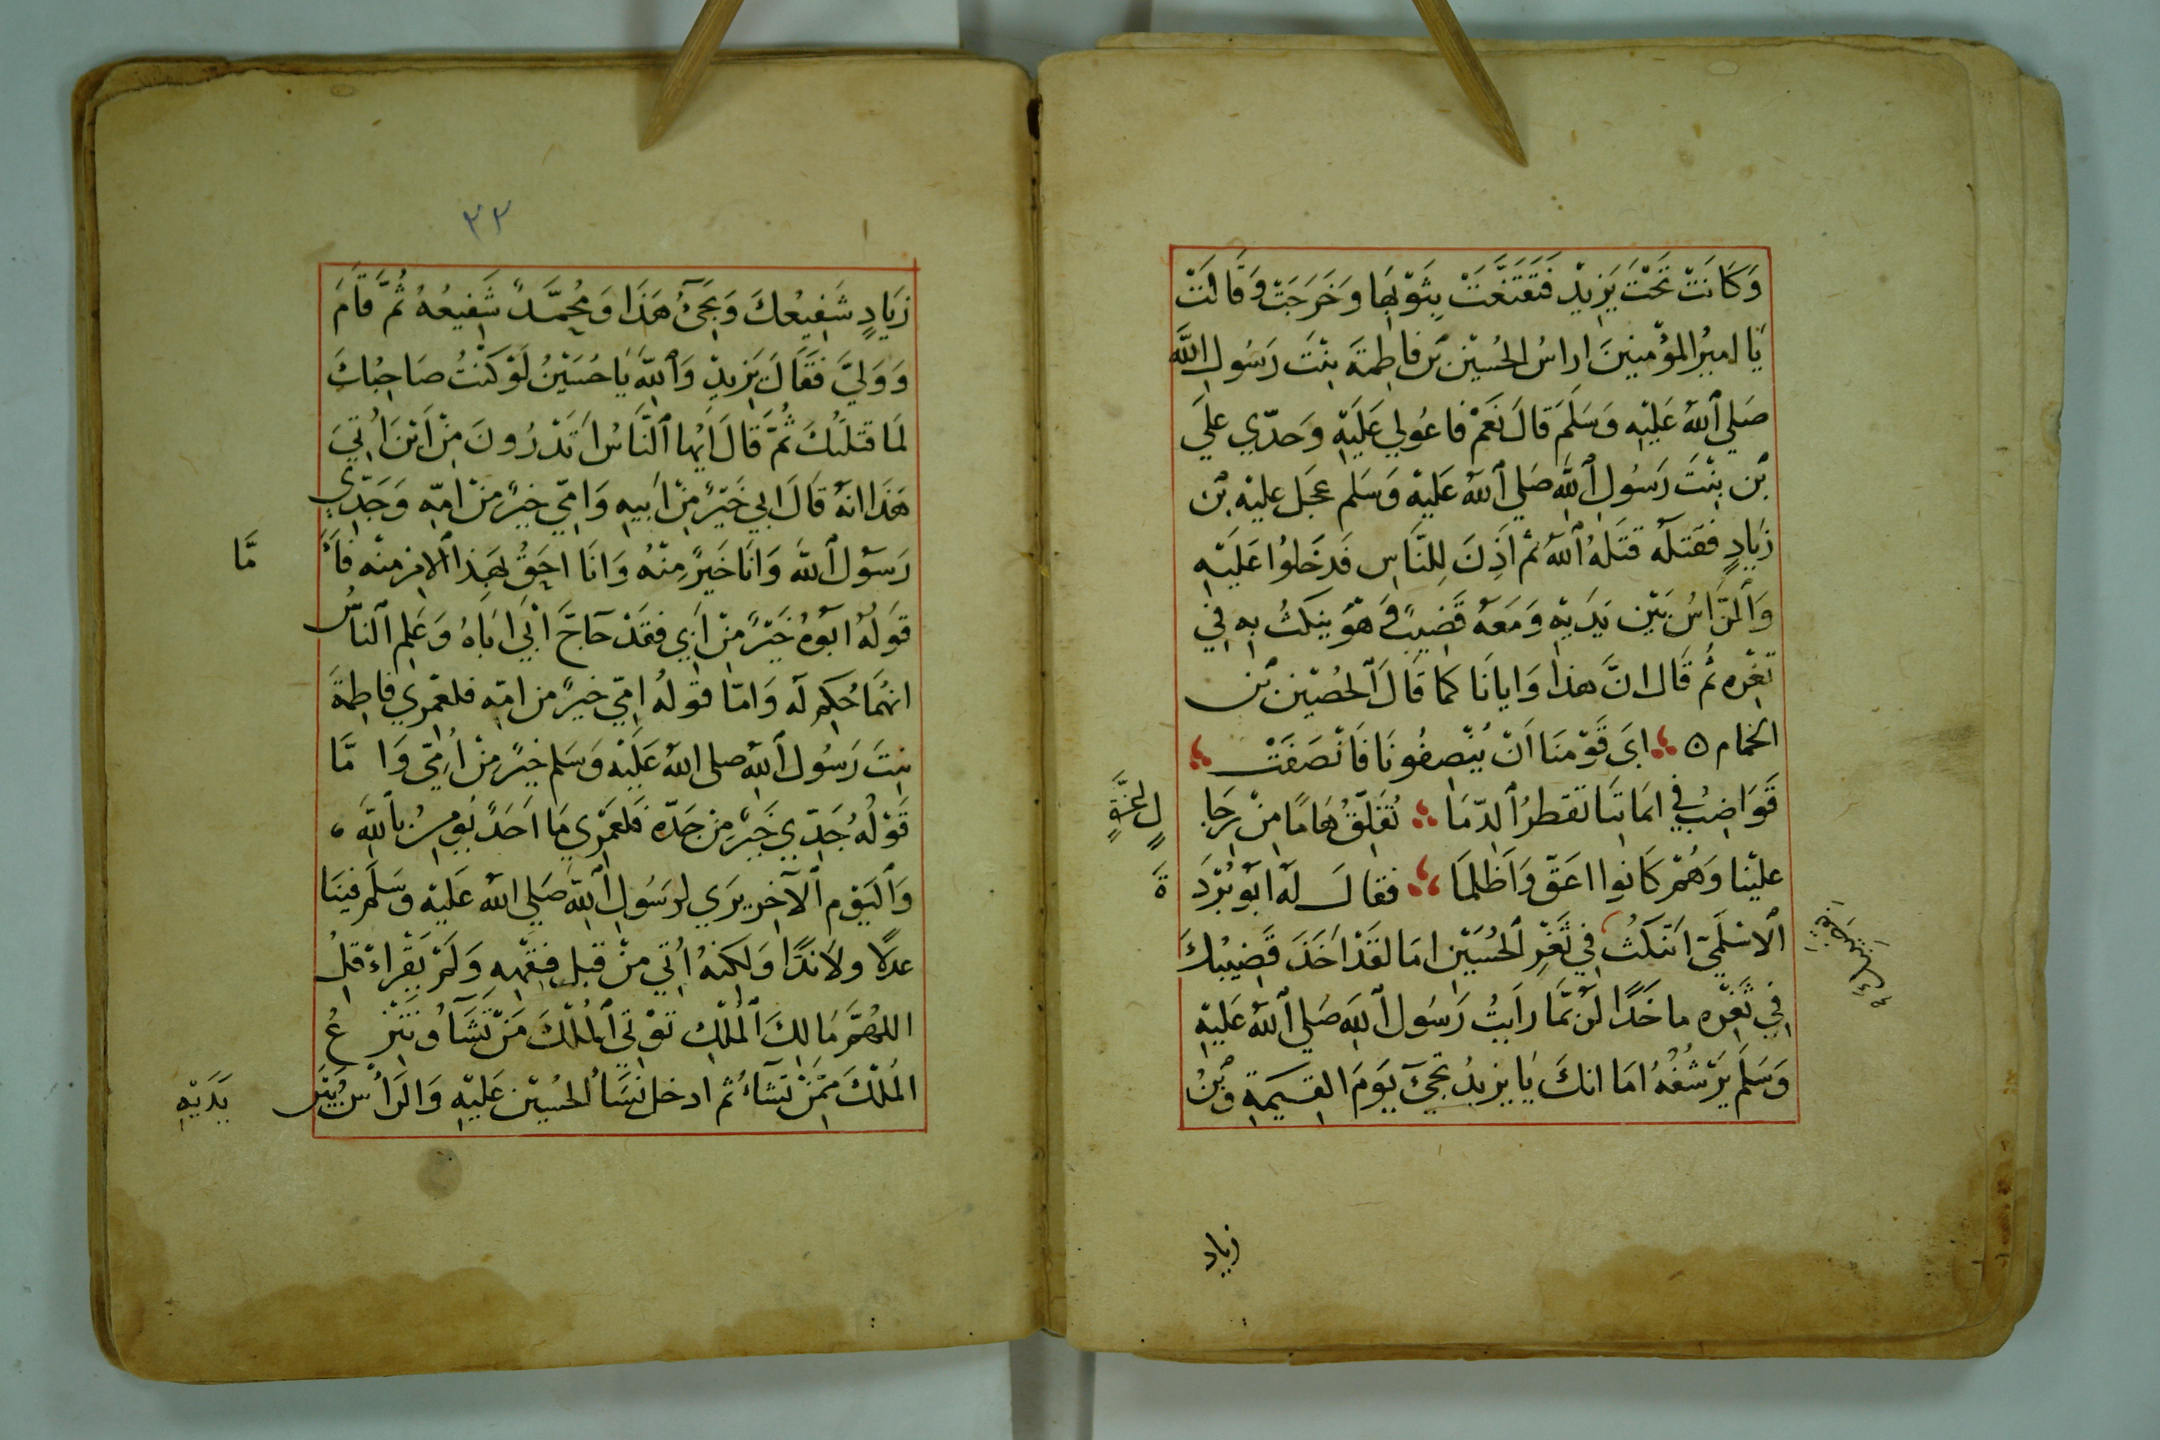 وَكَانَتْ تَحْتَ يَزِيدْ فَتَقَنَّعَتْ بِثَوْبِهَا وَخَرَجَتْ وَقَالَتْ
يَا امِيرُ المؤْمِنِينَ اراسُ الحُسَيْن بْن فاطِمَةَ بِنْتَ رَسُولِ اللّٰه
صَلي اللهُ عَلَيْهِ وَسَلَّمَ قالَ نَعَمْ فاعُولِي عَلَيْهِ وَحدّي عَلَي
بْن بِنْتَ رَسُولِ اللهِ صَلي اللهُ عَلَيْه وَسَلم عجَل عليْه بْن
زيَادٍ فقَتَلَهُ قتَلَهُ اللهُ ثم اذِنَ لِلنَّاسِ فَدخَلوُا عَلَيْهِ
وَالرَّاسُ بَيْنَ يَدَيْهِ وَمَعَهُ قَضِيبٌ فَهْوَ ينكثُ بِهِ فِي
تغْرِه ثُم قَال انَّ هذا وَايانَا كما قَالَ الحُصَيْن بْن
الحمام ه ابَى قَوْمنَا اَنْ يُنْصِفُونَا فَانْصَفَتْ
قَوَاضِبُ فِي ايمَانِنَا تقطرُ الدّمَا نُفَلِّقُ هَامًا مِنْ رِجَا
لٍ اعِزَّةٍ
علَيْنا وَهُمْ كَانوا اعَقّ وَاَظْلمَا فقالَ لهُ ابُو بُرْدَ
ةَ
الاسْلَمِيّ اتنكثُ فِي ثَغْرِ الحُسَيْن امَا لقَدْ اَخَذَ قَضِيبُكَ
فِي ثَغْرِه ماخَذًا لرُبَّمَا رايتُ رَسُول اللهِ صَلي اللهُ عَلَيْهِ
وَسَلم يَرْشُفُهُ امَا انكَ يَا يزيدُ تجِيَ يَوْمَ القِيمَةِ وَبْنُ
زياد
٣٢
زيَادٍ شَفِيعُكَ وَيَجِئُ هَذَا وَمُحَمَّدً شَفِيعُهُ ثُمَّ قَامَ
وَوَليَّ فقَالَ يَزِيدْ وَاللهِ يَا حُسَيْنُ لَوْ كنْتُ صَاحِبُكَ
لَمَا قتَلتُكَ ثُمَّ قَالَ اَيُّها النَّاسُ اَتَدْرُونَ مِنْ اَيْنَ اُتِيَ
هَذَا انهُ قالَ ابِي خَيْرً مِنْ اَبِيهِ وَامِّي خيرً مِنْ امّهِ وَجَدِّي
رَسُول اللهِ وَانَا خَيْرً مِنْهُ وَانَا احَقُّ بهَذا الامْرِ مِنْه فاَ
مَّا
قَولهُ ابُوهُ خَيْرً مِنْ اَبِي فقَدْ حَآجَّ اَبي ابَاهُ وَعَلِم النَّاسُ
ايّهُمَا حُكِمَ لَه وَامّا قوْلهُ امّي خيرً من امّهِ فلعَمْرِي فاطِمَةَ
بِنتَ رَسُول اللهِ صلى اللهُ عَلَيْه وَسَلم خيرً مِنْ اُمِّي وَا مَّا
قَوْلهُ جَدِّي خَيْرً مِنْ جَدّه فَلعَمْرِي مَا احَدً يَوْمِنُ باللهِ
وَاليَوْم الآخِر يرَي لرَسُولِ اللهِ صَلي اللهُ عَلَيْهِ وَسَلم فينَا
عدلًا ولَا نِدًّا وَلكِنهُ اُتي مِنْ قبلِ فِقْهِهِ وَلَمْ يَقْرَاءْ قلُ
اللهُمَّ مَالِكَ المُلْكِ تَوْتِي المُلْكَ مَنْ تَشَآءُ وتَنْزِعُ
المُلكَ مِمّنْ تشَآءُ ثم ادخل نسَآُ الحُسَيْن عَليْهِ وَالرَاُسُ بَيْنَ
يَدَيْهِ